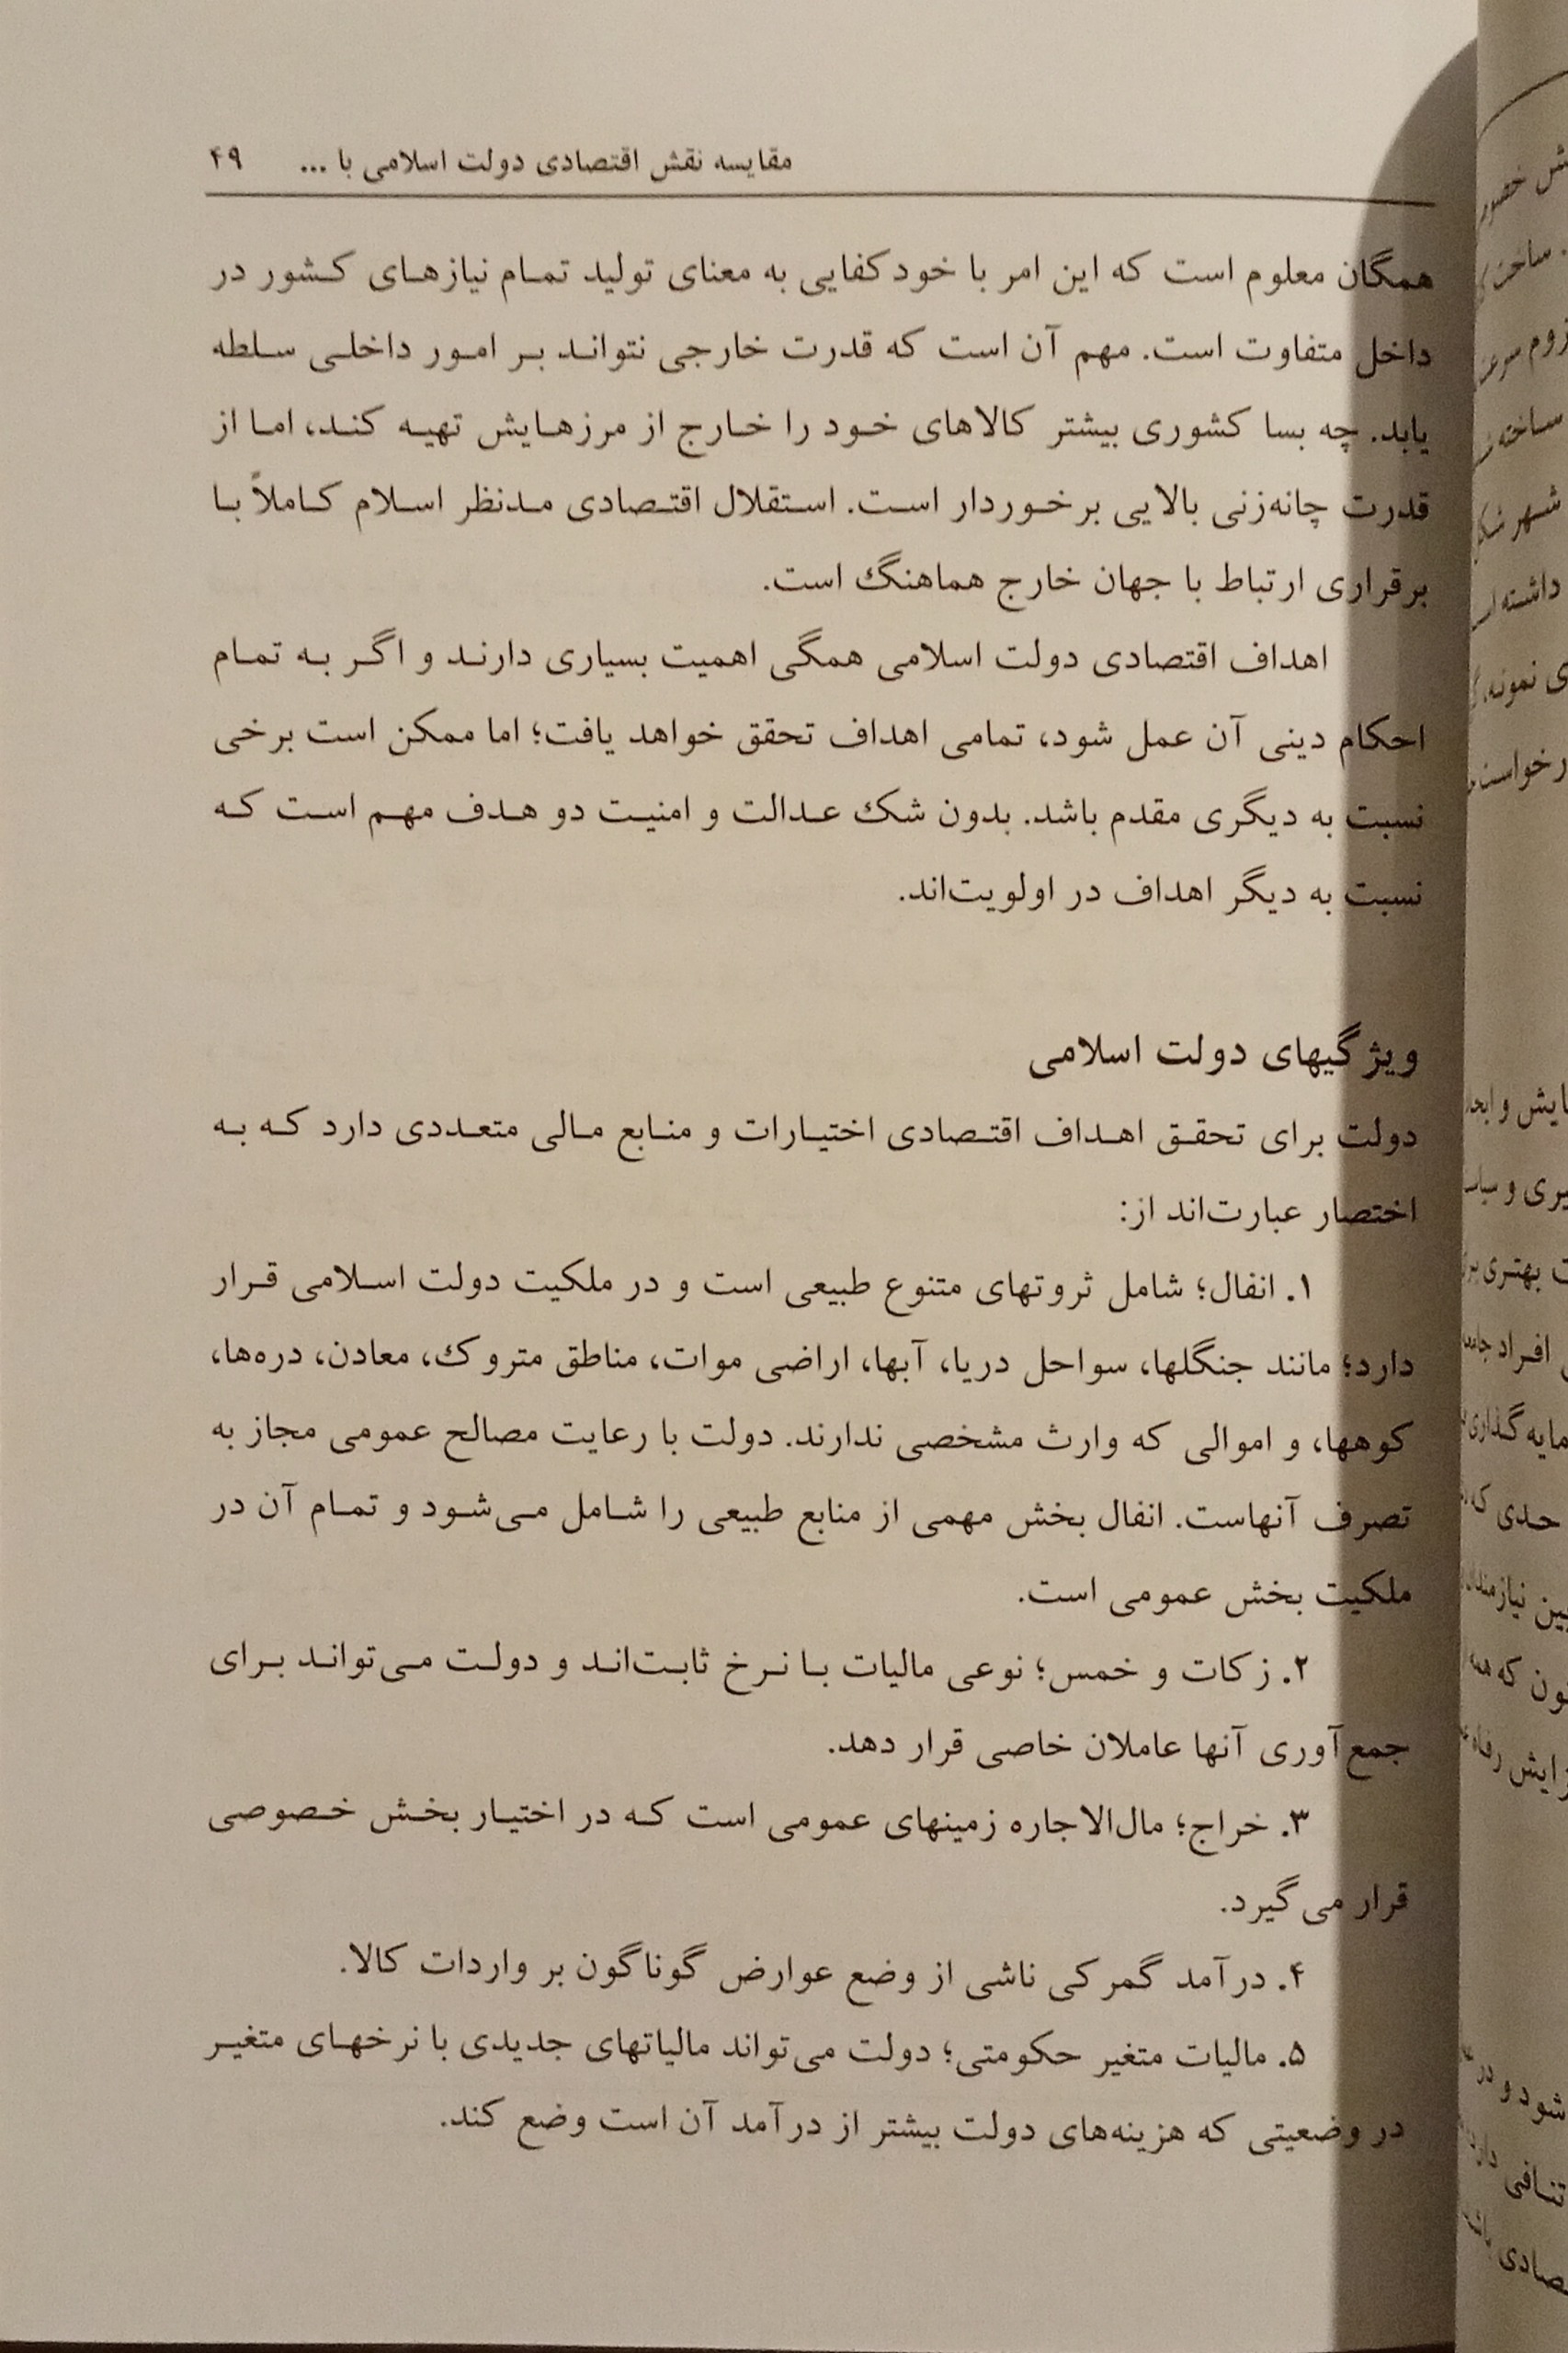 مقایسه نقش اقتصادی دولت اسلامی با ... ۴۹
همگان معلوم است که این امر با خودکفایی به معنای تولید تمام نیازهای کشور در
داخل متفاوت است. مهم آن است که قدرت خارجی نتواند بر امور داخلی سلطه
یابد. چه بسا کشوری بیشتر کالاهای خود را خارج از مرزهایش تهیه کند، اما از
قدرت چانه‌زنی بالایی برخوردار است. استقلال اقتصادی مدنظر اسلام کاملاً با
برقراری ارتباط با جهان خارج هماهنگ است.
اهداف اقتصادی دولت اسلامی همگی اهمیت بسیاری دارند و اگر به تمام
احکام دینی آن عمل شود، تمامی اهداف تحقق خواهد یافت؛ اما ممکن است برخی
نسبت به دیگری مقدم باشد. بدون شک عدالت و امنیت دو هدف مهم است که
نسبت به دیگر اهداف در اولویت‌اند.
ویژگیهای دولت اسلامی
دولت برای تحقق اهداف اقتصادی اختیارات و منابع مالی متعددی دارد که به
اختصار عبارت‌اند از:
۱. انفال؛ شامل ثروتهای متنوع طبیعی است و در ملکیت دولت اسلامی قرار
دارد؛ مانند جنگلها، سواحل دریا، آبها، اراضی موات، مناطق متروک، معادن، دره‌ها،
کوهها، و اموالی که وارث مشخصی ندارند. دولت با رعایت مصالح عمومی مجاز به
تصرف آنهاست. انفال بخش مهمی از منابع طبیعی را شامل می‌شود و تمام آن در
ملکیت بخش عمومی است.
۲. زکات و خمس؛ نوعی مالیات با نرخ ثابت‌اند و دولت می‌تواند برای
جمع‌آوری آنها عاملان خاصی قرار دهد.
۳. خراج؛ مال‌الاجاره زمینهای عمومی است که در اختیار بخش خصوصی
قرار می‌گیرد.
۴. درآمد گمرکی ناشی از وضع عوارض گوناگون بر واردات کالا.
۵. مالیات متغیر حکومتی؛ دولت می‌تواند مالیاتهای جدیدی با نرخهای متغیر
در وضعیتی که هزینه‌های دولت بیشتر از درآمد آن است وضع کند.